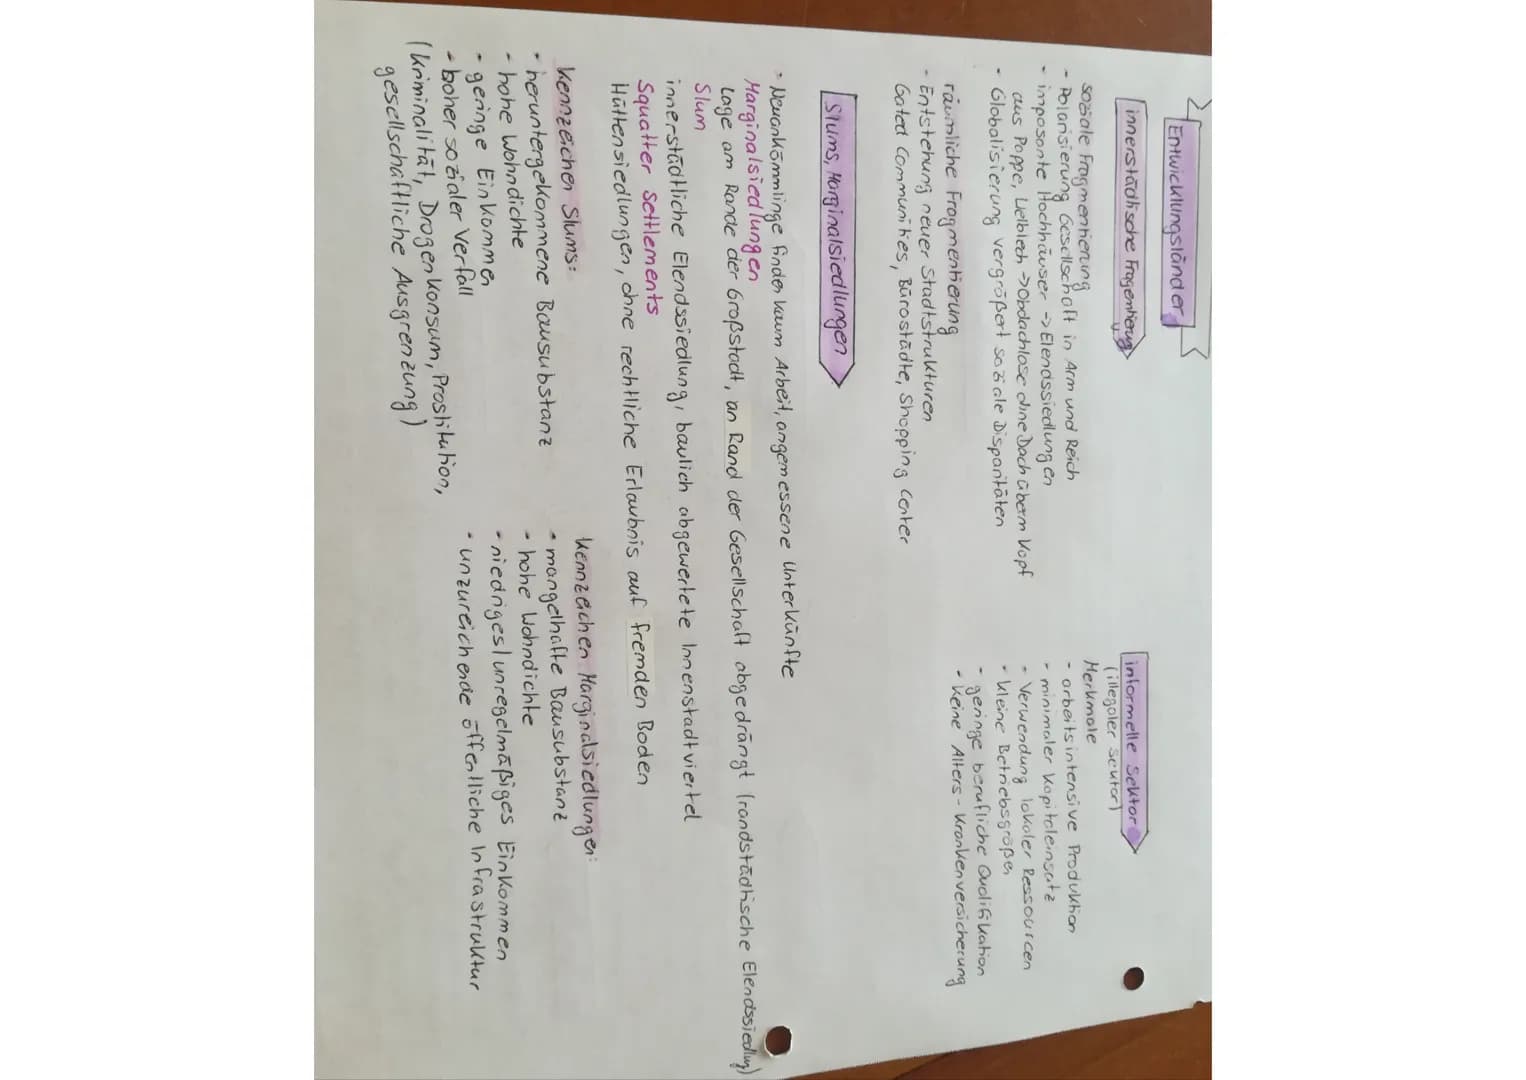 Entwicklungsländer
innerstädtische Fragentierung
soziale Fragmentierung
- Polarisierung Gesellschaft in Arm und Reich
· imposante Hochhäuser -> Elendssiedlungen
aus Pappe, Welblech -> Obdachlose ohne Dach überm Kopf
· Globalisierung vergrößert soziale Disparitäten
räumliche Fragmentierung
- Entstehung neuer Stadtstrukturen
Gated Communities, Bürostädte, Shopping Center
informelle Sektor
(illegaler Sektor)
Merkmale
- arbeitsintensive Produktion
- minimaler Kapitaleinsatz
- Verwendung lokaler Ressourcen
· kleine Betriebsgrößen
- geringe berufliche Qualifikation
- keine Alters- Krankenversicherung
Slums, Marginalsiedlungen
· Neuankömmlinge finden kaum Arbeit, angemessene Unterkünfte
Marginalsiedlungen
Lage am Rande der Großstadt, an Rand der Gesellschaft abgedrängt (randstädtische Elendssiedlung)
Slum
innerstädtliche Elendssiedlung, baulich abgewertete Innenstadtviertel
Squatter Settlements
Hüttensiedlungen, ohne rechtliche Erlaubnis auf fremden Boden
Kennzeichen Slums:
· heruntergekommene Bausubstanz
· hohe Wohndichte
· geringe Einkommen
- hoher sozialer Verfall
(Kriminalität, Drogenkonsum, Prostitution,
gesellschaftliche Ausgrenzung)
Kennzeichen Marginalsiedlungen:
· mangelhafte Bausubstanz
· hohe Wohndichte
· niedriges/unregelmäßiges Einkommen
· unzureichende öffentliche Infrastruktur